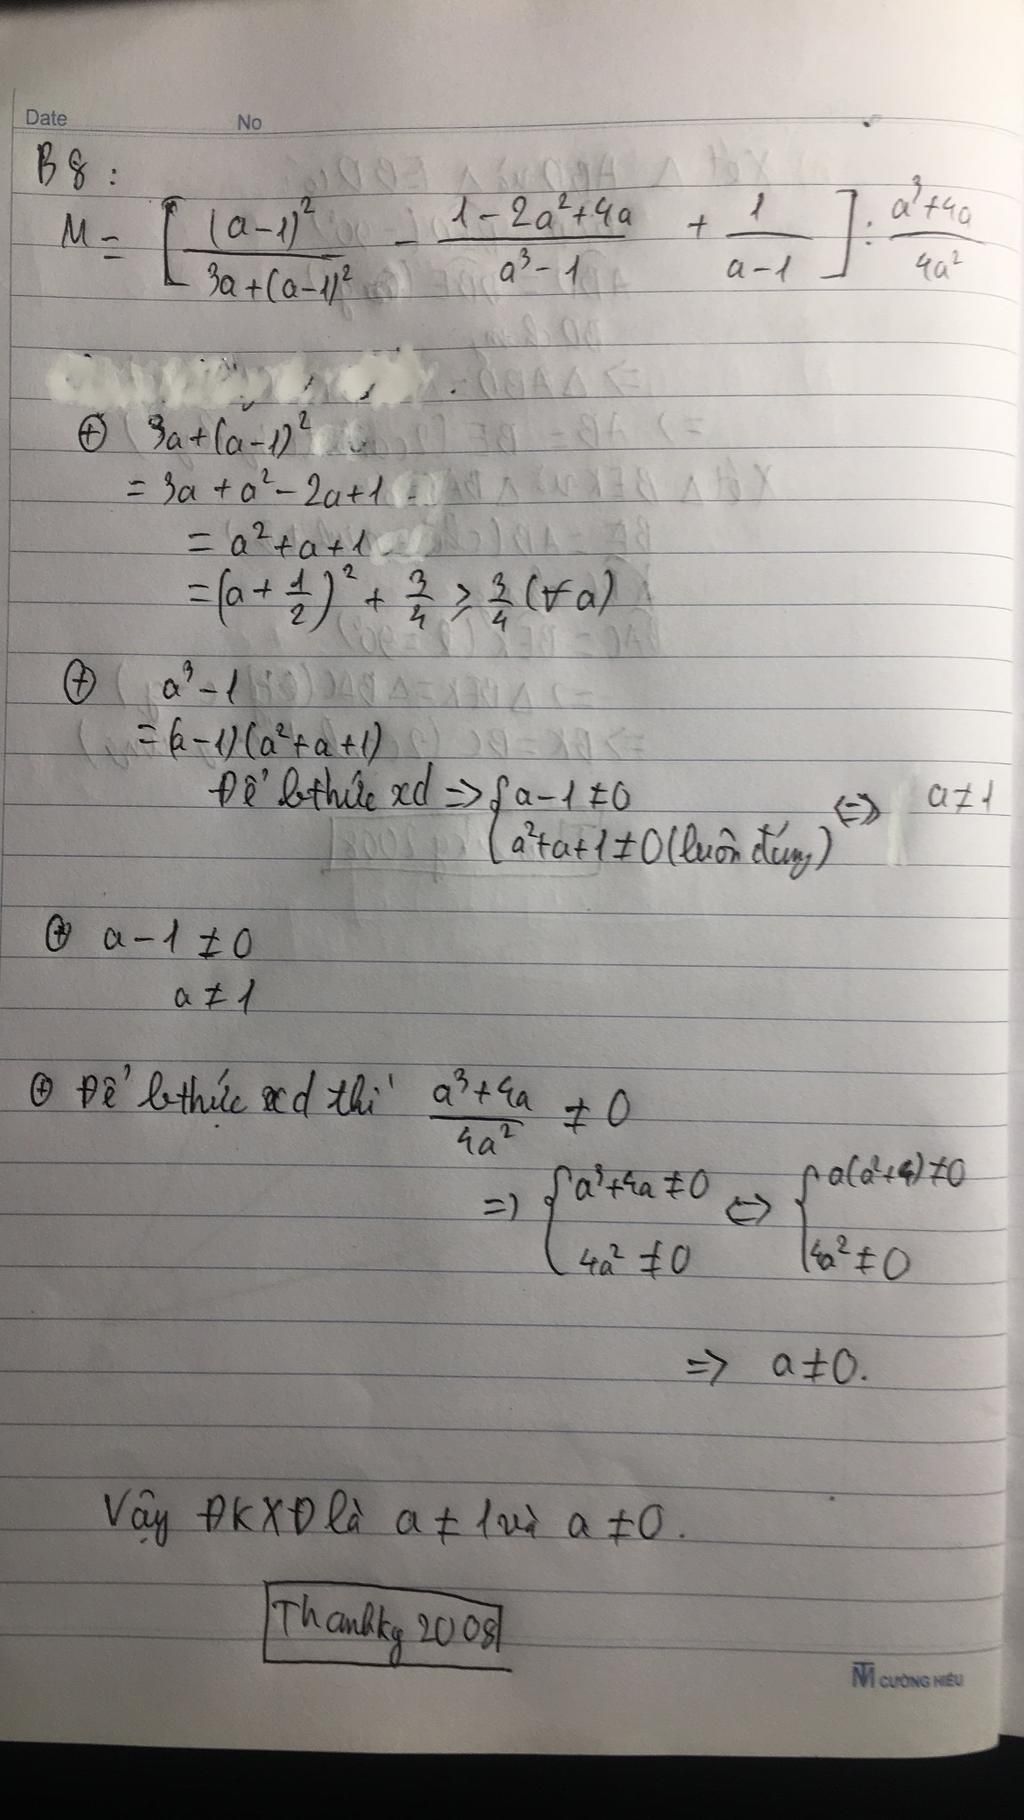 Date No
B8:
M = [ (a-1)² / 3a+(a-1)² - 1-2a²+4a / a³-1 + 1 / a-1 ] : a³+4a / 4a²
⊕ 3a+(a-1)²
= 3a + a² - 2a + 1
= a² + a + 1
= (a + 1/2)² + 3/4 ≥ 3/4 (∀a)
⊕ a³ - 1
= (a-1)(a²+a+1)
Để b thức xd => { a-1 ≠ 0 <=> a ≠ 1
a²+a+1 ≠ 0 (luôn đúng)
⊕ a - 1 ≠ 0
a ≠ 1
⊕ Để b thức xd thì a³+4a / 4a² ≠ 0
=> { a³+4a ≠ 0 <=> { a(a²+4) ≠ 0
4a² ≠ 0 4a² ≠ 0
=> a ≠ 0.
Vậy ĐKXĐ là a ≠ 1 và a ≠ 0.
Thanhky 2008
CƯỜNG HIẾU